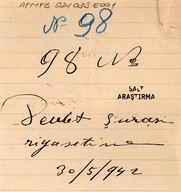 AFMFB 024 033 E001
№ 98
98 №
SALT
ARAŞTIRMA
Devlet Şurası
riyasetine
30/5/942